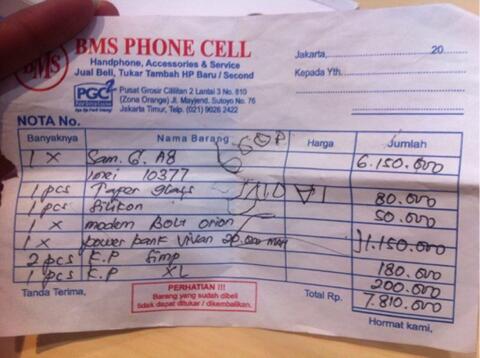 BMS
BMS PHONE CELL
Handphone, Accessories & Service
Jual Beli, Tukar Tambah HP Baru / Second
PGC
Pusat Grosir Cililitan 2 Lantai 3 No. 810
(Zona Orange) Jl. Mayjend. Sutoyo No. 76
Jakarta Timur, Telp. (021) 9026 2422
Jakarta, 20
Kepada Yth.
NOTA No.
Banyaknya Nama Barang Harga Jumlah
1 x Sam. G. A8 6.150.000
imei 10377
1 pcs Taper glass 80.000
1 pcs Silikon 50.000
1 x modem Bolt orion 1.150.000
1 x power bank Vivan 20.000 mah
2 pcs K.P Simp 180.000
1 pcs K.P XL 200.000
Tanda Terima,
PERHATIAN !!!
Barang yang sudah dibeli
tidak dapat ditukar / dikembalikan.
Total Rp. 7.810.000
Hormat kami,